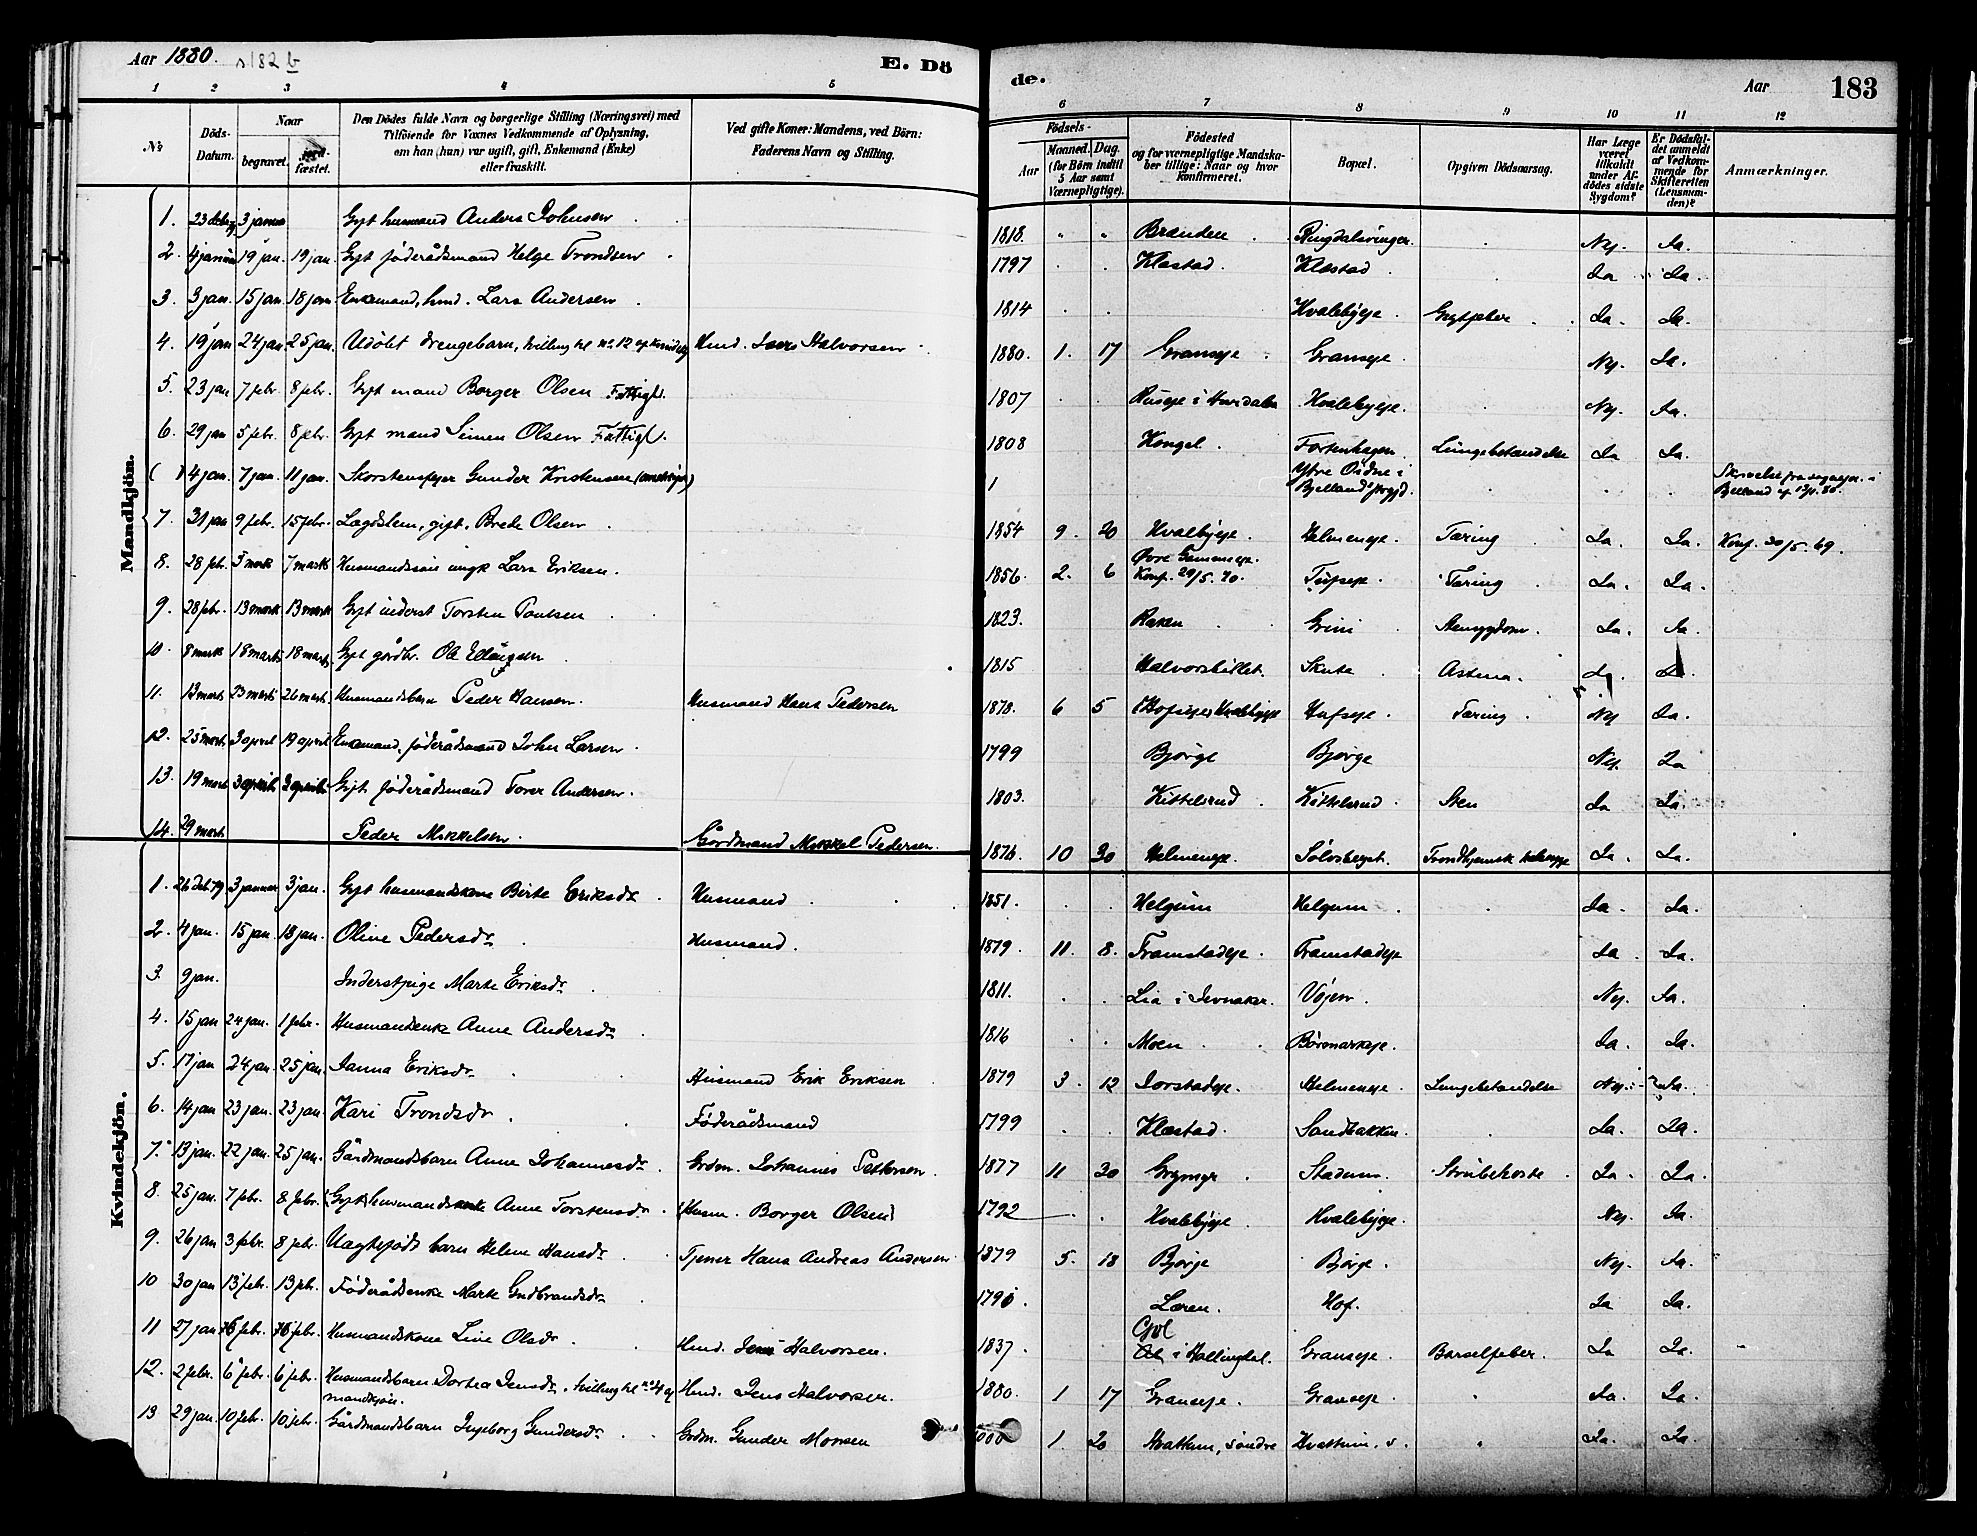 Aar 1880. s182 b
E. Dö
de.
Aar
183
1 2 3 4 5 6 7 8 9 10 11 12
No.
Döds-Datum.
Naar
begravet.
jordfæstet.
Den Dödes fulde Navn og borgerlige Stilling (Næringsvei) med
Tilföiende for Voxnes Vedkommende af Oplysning,
om han (hun) var ugift, gift, Enkemand (Enke)
eller fraskilt.
Ved gifte Koner: Mandens, ved Börn:
Faderens Navn og Stilling.
Födsels-
Aar
Maaned. Dag.
(for Börn indtil
5 Aar samt
Værnepligtige).
Födested
og for værnepligtige Mandska-
ber tillige: Naar og hvor
konfirmeret.
Bopæl.
Opgiven Dödsaarsag.
Har Læge
været
tilkaldt
under Af-
dödes sidste
Sygdom?
Er Dödsfal-
det anmeldt
af Vedkom-
mende for
Skifteretten
(Lensman-
den)?
Anmærkninger.
Mandkjön.
1. 3 januar Gift husmand Anders Johnsen 1818. Branden Ringdalsvingen. Nej. Ja.
2. 4 januar 19 jan. 19 jan Gift föderådsmand Helge Trondsen 1797 Klæstad. Klæstad Ja Ja.
3. 3 jan. 15 jan 18 jan Enkemand, hmd. Lars Andersen 1814 Hvalebyeje. Gigtfeber Ja. Ja.
4. 19 jan 24 jan 25 jan. Udöbt drengebarn, tvilling til no. 12 af kvindekj Hmd. Jens Halvorsen 1880. 1. 17 Graneje Graneje. Nej. Ja.
5. 23 jan 7 febr. 8 febr. Gift mand Borger Olsen Fattigl. 1807 i Hurdalen Hvalebyeje. Nej. Ja.
6. 29 jan 5 febr. 8 febr. Gift mand Simen Olsen Fattigl. 1808 Kongel. Fortenhagen. Lungebetændelse Ja Ja.
( ) 4 jan. 7 jan. 11 jan. Skorstensfejer Gunder Kristensen Ytre Øidne i Bjellands prgjd.
7. 31 jan 9 febr. 15 febr. Lægdslem, gift, Brede Olsen 1854 9. 20 Hvalebyeje. Helmeneje. Tæring Ja. Ja. Konf. 30/5. 69.
8. 28 febr. 5 mark 7 mark Husmandssön ungk Lars Eriksen. 1856. 2. 6 Øvre Gamemeje. Konf. 29/5. 70. Tufseje. Tæring Ja. Ja.
9. 28 febr. 13 mark 13 mark Gift inderst Torsten Paulsen 1823. Raken Grini Stensygdom. Ja. Ja.
10. 8 mark 18 mart 18 mart Gift gårdbr. Ole Ellingsen 1815 Halvorshillet. Skute Astma. Ja. Ja.
11. 13 mart. 23 mart 26 mart. Husmandsbarn Peder Hansen. Husmand Hans Pedersen 1878. 6 5 Hofseje. Tæring Nej Ja.
12. 25 mart. 3 april 19 april Enkemand, föderådsmand John Larsen 1799 Bjørge Bjørge Nej. Ja
13. 19 mart Gift föderådsmand Torer Andersen. 1803. Kittelsrud Kittelsrud Sten Ja Ja.
14. 29 mart Peder Mikkelsen. Gårdmand Mikkel Pedersen. 1876. 10 30 Helmeneje. Sölvsberget. Trondhjemsk Ja. Ja.
Kvindekjön.
1. 26 deb 79 3 januar 3 jan. Gift husmandskone Birte Eriksdr Husmand 1851. Helgum Helgum Ja. Ja.
2. 4 jan. 15 jan. 18 jan. Oline Pedersdr Husmand. 1879. 11. 8. Framstadeje. Framstadeje Ja. Ja.
3. 9 jan. Inderstpige Marte Eriksdr 1811. Lia i Jevnaker. Vøjen. Nej. Ja.
4. 15 jan 24 jan. 1 febr. Husmandsenke Anne Andersdr 1816 Moen Børomarkeje. Ja. Ja.
5. 17 jan 24 jan. 25 jan. Janna Eriksdr Husmand Erik Eriksen 1879 3. 12 Jorstadeje. Helmeneje. Lungebetændelse Nej. Ja.
6. 14 jan 23 jan. 23 jan. Kari Trondsdr Föderådsmand 1799 Klæstad. Sandbakken. Ja. Ja.
7. 13 jan. 22 jan. 25 jan. Gårdmandsbarn Anne Johannesdr Grdm. Johannes Pettersen 1877 11 30 Grymyr Stadum. Strubehoste. Ja. Ja.
8. 25 jan. 7 febr. 8 febr. (Gift) husmandskone Anne Torstensdr (Husm. Borger Olsen) 1792 Hvalebyeje. Hvalebyeje. Nej. Ja.
9. 26 jan 3 febr. 8 febr. Uægtefödt barn Helene Hansdr Tjener Hans Andreas Andersen 1879 5. 18 Bjørge Bjørge. Nej. Ja.
10 30 jan 13 febr. 13 febr. Föderådsenke Marte Gudbrandsdr 1790. Læren. Hof. Ja Ja.
11 27 jan febr. febr. Husmandskone Live Olsdr Hmd. Jens Halvorsen. 1837. Gol i Hallingdal. Graneje. Barselfeber. Ja Ja.
12. 2 febr. 6 febr. 6 febr. Husmandsbarn Dortea Jensdr, tvilling til no 4 af mandkjön. Hmd. Jens Halvorsen. 1880. 1 17 Graneje. Graneje Ja. Ja.
13 29 jan. 10 febr. 10 febr. Gårdmandsbarn Ingeborg Gundersdr Grdm. Gunder Monsen 1. 20 Hvattum, søndre Hvattum, s. Ja. Ja.